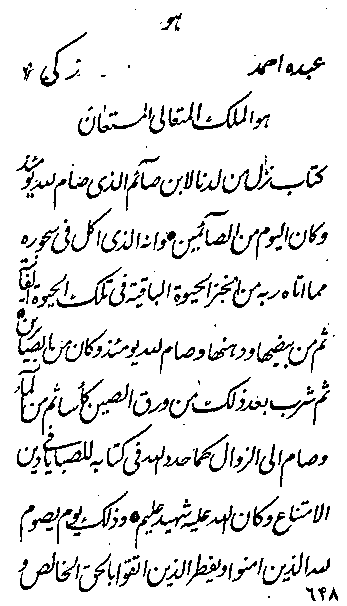 هو
عبده احمد زكى
هو الملك المتعالى المستعان
كتاب نزل من لدنا لابن صائم الذى صام لله يومئذ
و كان اليوم من الصائمين و انه الذى اكل فى سحوره
مما اتاه ربه من الخبز الحيوة الباقية فى تلك الحيوة الفانية
ثم من بيضها و دهنها و صام لله يومئذ و كان من الصابرين
ثم شرب بعد ذلك من ورق الصين كأسا ثم من الماء
و صام الى الزوال كما حدد الله فى كتابه للصبايا فى دين
الامتناع و كان الله عليه شهيد عليم و ذلك يوم يصوم
لله الذين امنوا و يفطر الذين اتقوا بالحق الخالص و
٦٤٨